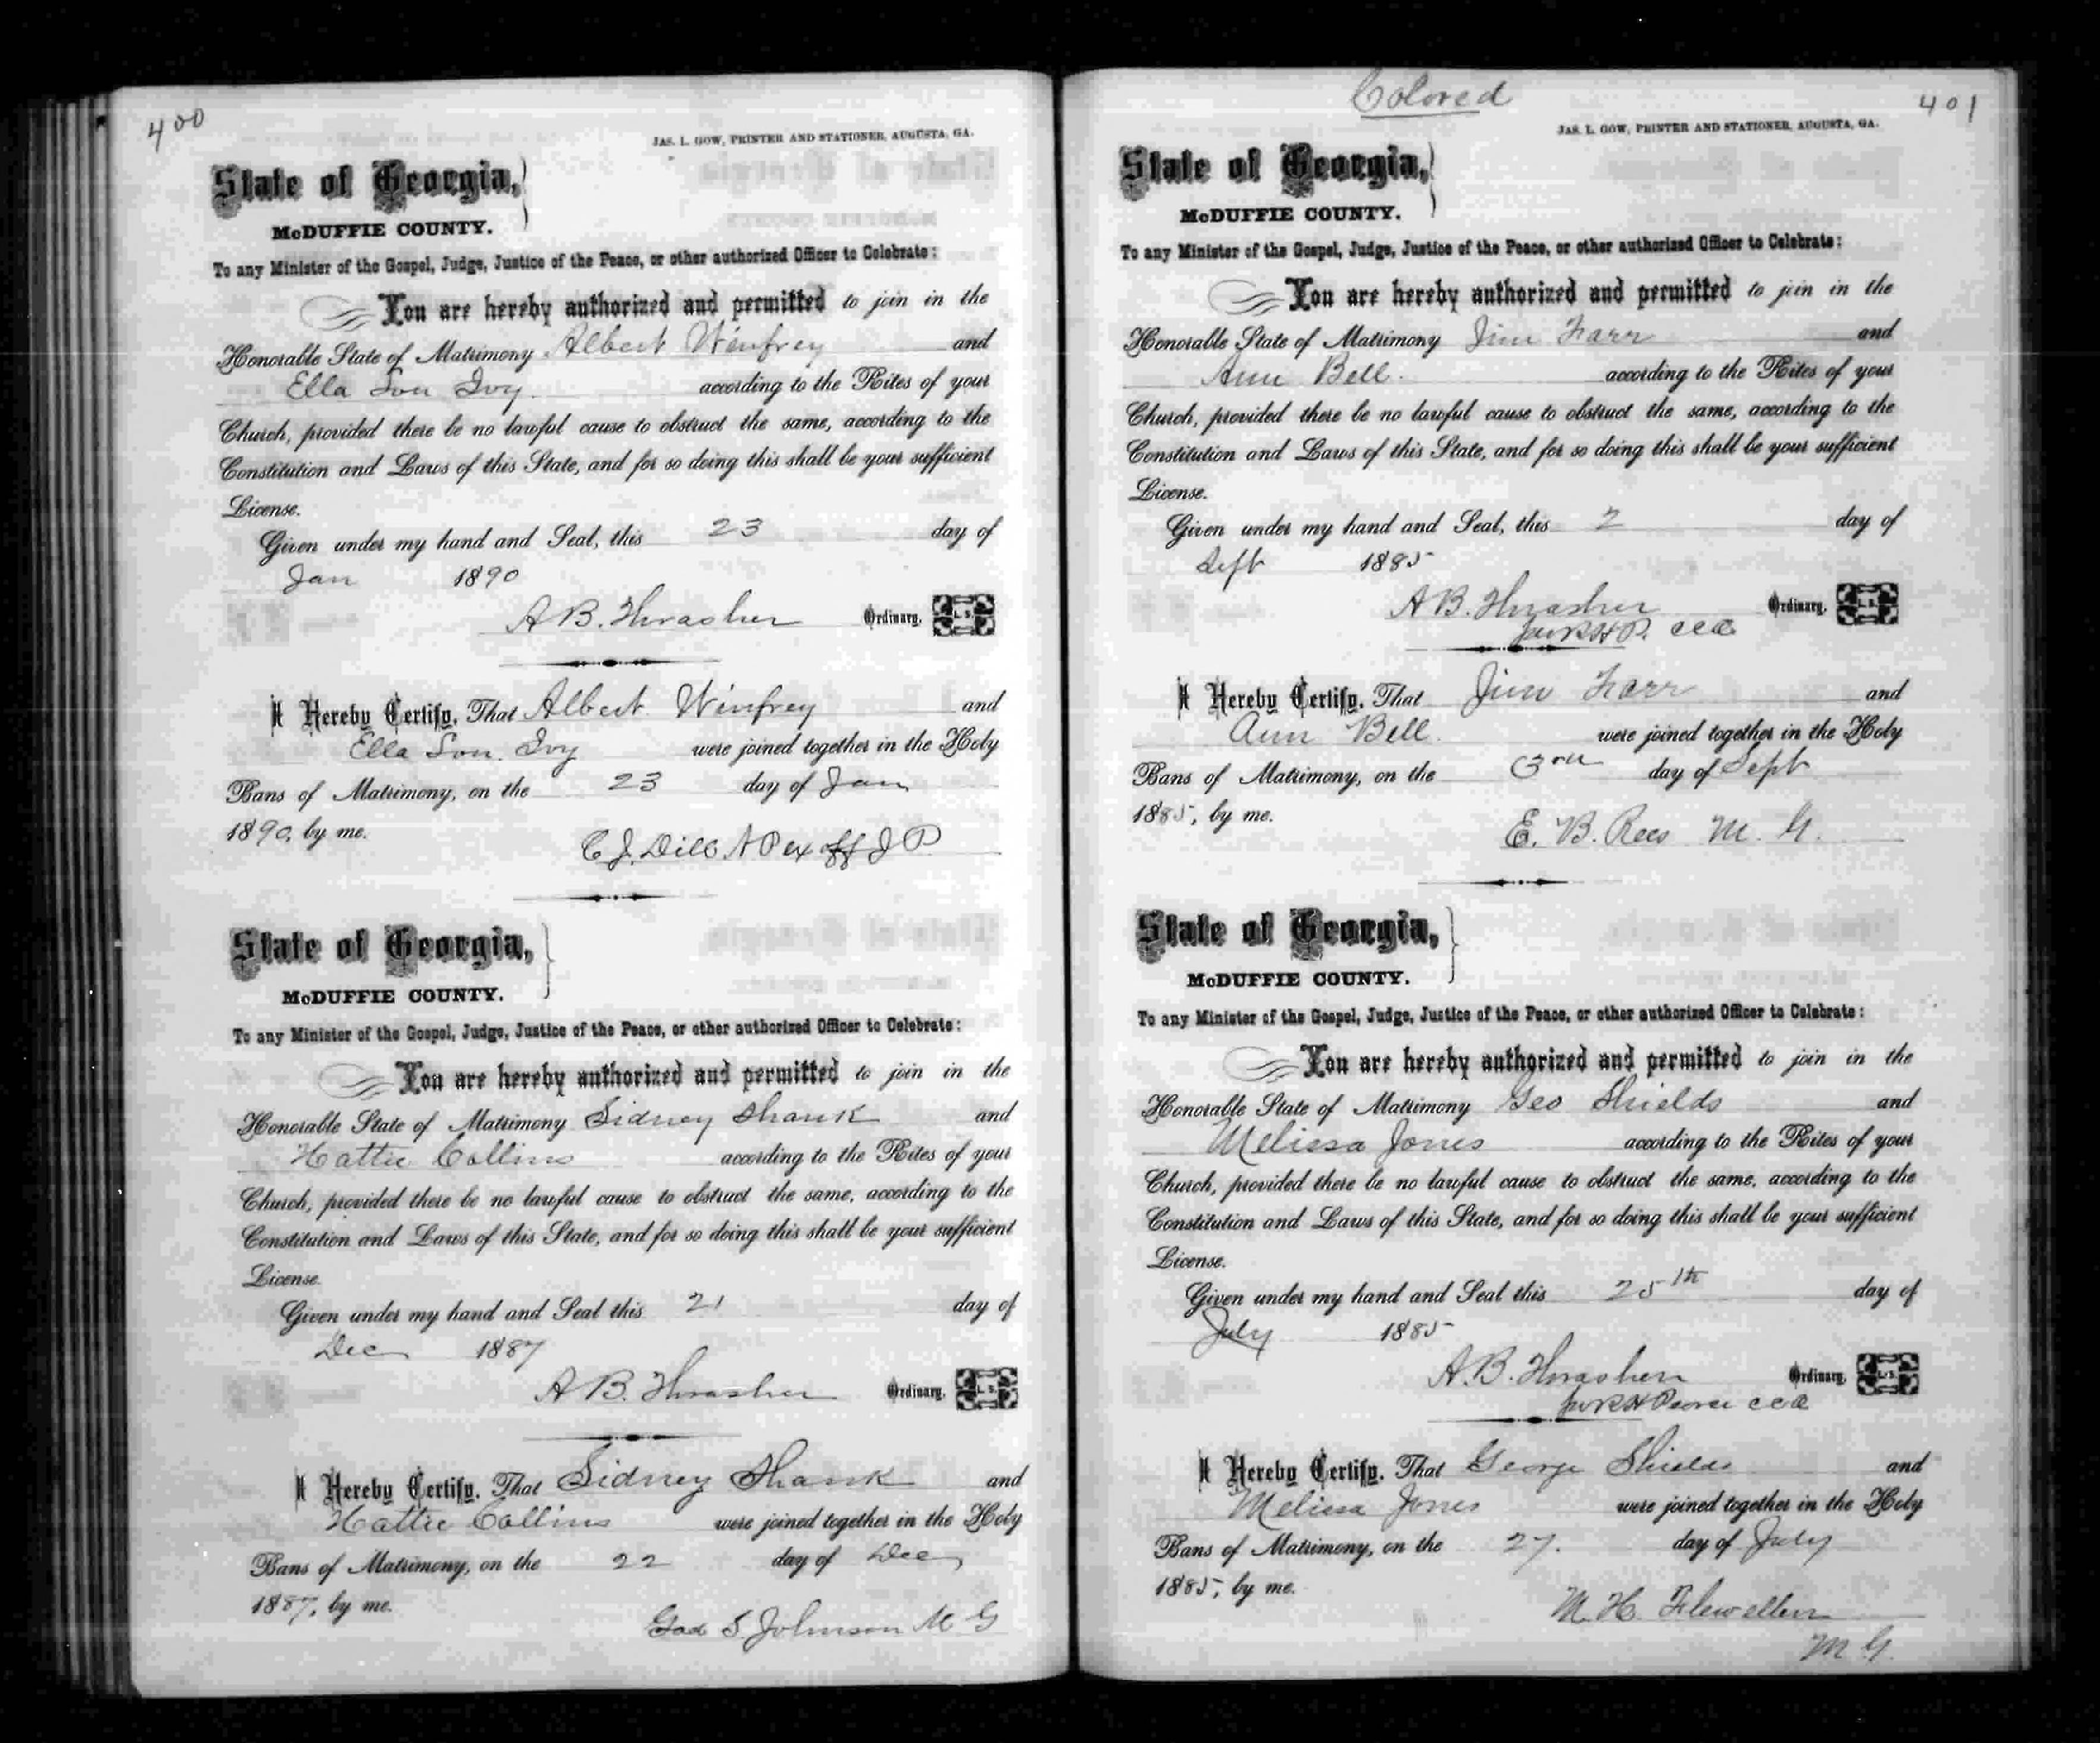 400
JAS. L. GOW, PRINTER AND STATIONER, AUGUSTA, GA.
State of Georgia,
McDUFFIE COUNTY.
To any Minister of the Gospel, Judge, Justice of the Peace, or other authorized Officer to Celebrate:
You are hereby authorized and permitted to join in the
Honorable State of Matrimony Albert Winfrey and
Ella Lou Ivy. according to the Rites of your
Church, provided there be no lawful cause to obstruct the same, according to the
Constitution and Laws of this State, and for so doing this shall be your sufficient
License.
Given under my hand and Seal, this 23 day of
Jan 1890
A B. Thrasher Ordinary. L. S.
I Hereby Certify, That Albert Winfrey and
Ella Lou. Ivy were joined together in the Holy
Bans of Matrimony, on the 23 day of Jan
1890, by me.
C J. Dill N P ex off J P
State of Georgia,
McDUFFIE COUNTY.
To any Minister of the Gospel, Judge, Justice of the Peace, or other authorized Officer to Celebrate:
You are hereby authorized and permitted to join in the
Honorable State of Matrimony Sidney Shank and
Hattie Collins according to the Rites of your
Church, provided there be no lawful cause to obstruct the same, according to the
Constitution and Laws of this State, and for so doing this shall be your sufficient
License.
Given under my hand and Seal this 21 day of
Dec 1887
A B. Thrasher Ordinary. L. S.
I Hereby Certify, That Sidney Shank and
Hattie Collins were joined together in the Holy
Bans of Matrimony, on the 22 day of Dec
1887, by me.
S. Johnson M G
Colored
401
JAS. L. GOW, PRINTER AND STATIONER, AUGUSTA, GA.
State of Georgia,
McDUFFIE COUNTY.
To any Minister of the Gospel, Judge, Justice of the Peace, or other authorized Officer to Celebrate:
You are hereby authorized and permitted to join in the
Honorable State of Matrimony Jim Farr and
Ann Bell. according to the Rites of your
Church, provided there be no lawful cause to obstruct the same, according to the
Constitution and Laws of this State, and for so doing this shall be your sufficient
License.
Given under my hand and Seal, this 2 day of
Sept 1885
A B. Thrasher Ordinary. L. S.
per R H P. CCO
I Hereby Certify, That Jim Farr and
Ann Bell. were joined together in the Holy
Bans of Matrimony, on the 3rd day of Sept
1885, by me.
E. B. Rees M. G.
State of Georgia,
McDUFFIE COUNTY.
To any Minister of the Gospel, Judge, Justice of the Peace, or other authorized Officer to Celebrate:
You are hereby authorized and permitted to join in the
Honorable State of Matrimony Geo Shields and
Melissa Jones according to the Rites of your
Church, provided there be no lawful cause to obstruct the same, according to the
Constitution and Laws of this State, and for so doing this shall be your sufficient
License.
Given under my hand and Seal this 25th day of
July 1885
A. B. Thrasher Ordinary. L. S.
per R H Pearce CCO
I Hereby Certify, That George Shields and
Melissa Jones were joined together in the Holy
Bans of Matrimony, on the 27. day of July
1885, by me.
M. H. Flewellen
M G.